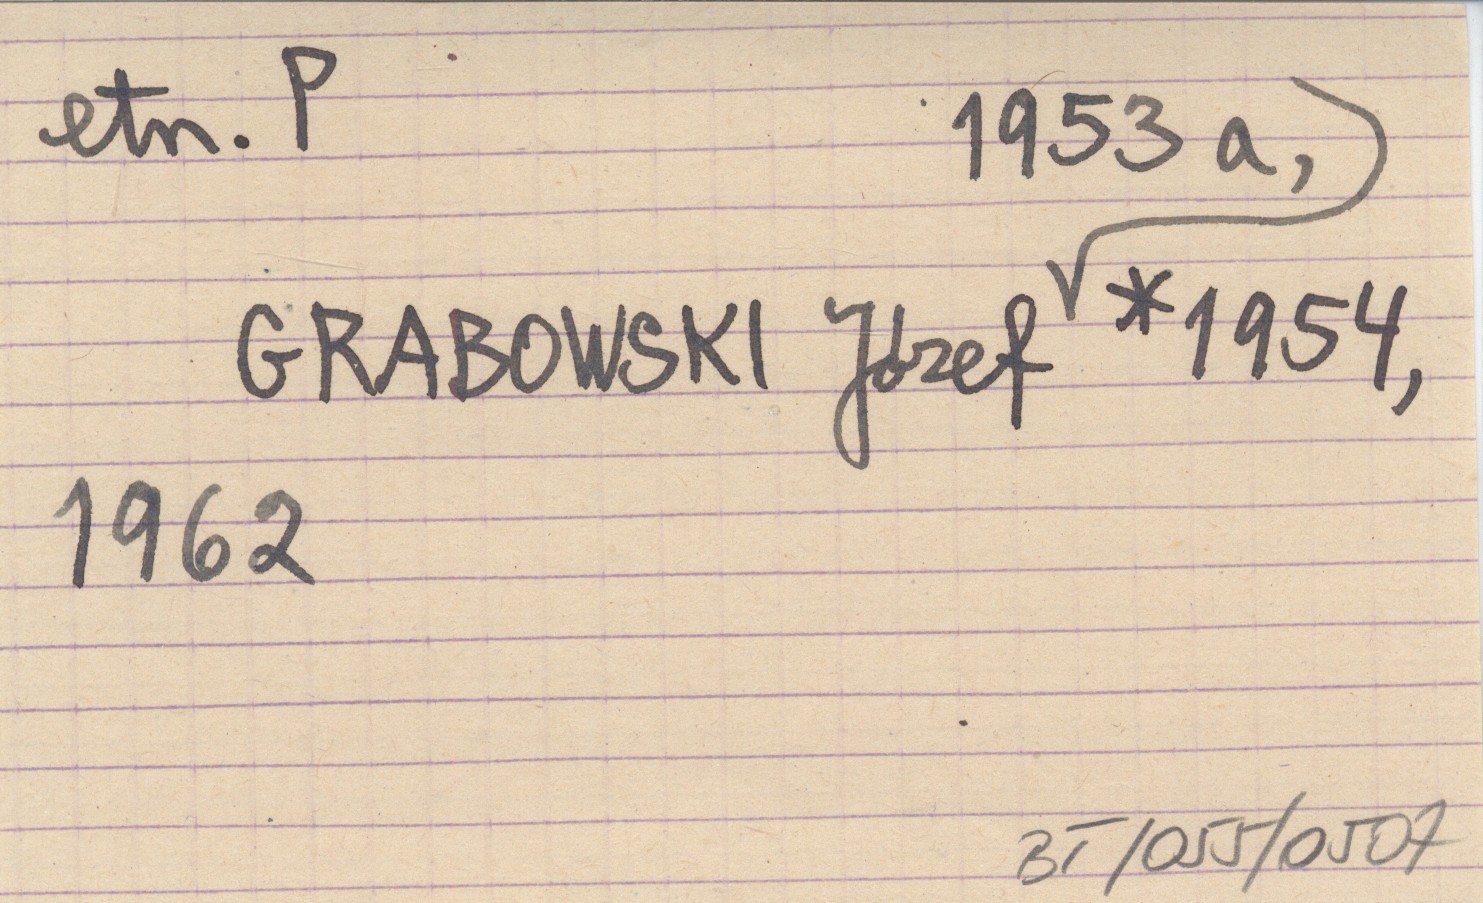 etn. P
1953 a,
GRABOWSKI Józef *1954,
1962
BT/055/0507